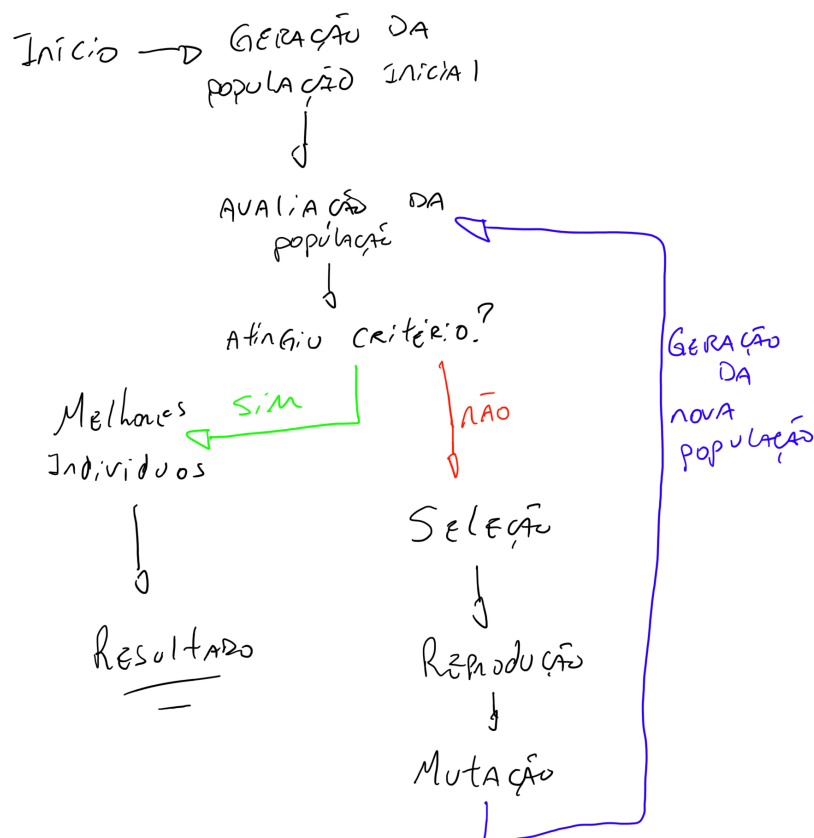 Início → GERAÇÃO DA
população inicial
AVALIAÇÃO DA
população
Atingiu critério?
Sim
não
Melhores
Indivíduos
Seleção
Resultado
Reprodução
Mutação
GERAÇÃO
DA
nova
população